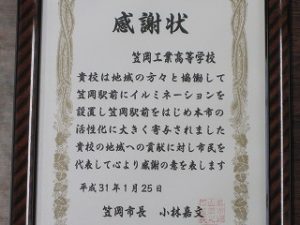 感謝状
笠岡工業高等学校
貴校は地域の方々と協働して
笠岡駅前にイルミネーションを
設置し笠岡駅前をはじめ本市の
活性化に大きく寄与されました
貴校の地域への貢献に対し市民を
代表して心より感謝の意を表します
平成31年1月25日
笠岡市長 小林嘉文